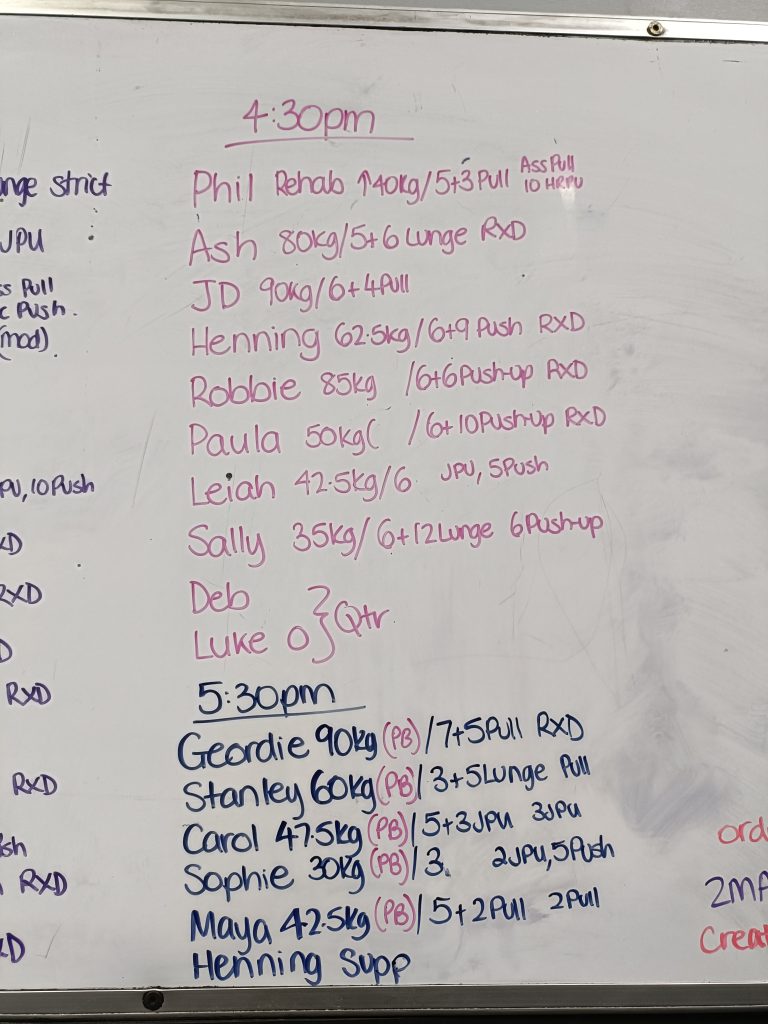 4:30pm
Phil Rehab ↑40kg/5+3Pull Ass Pull
10 HRPU
Ash 80kg/5+6 Lunge RXD
JD 90kg/6+4Pull
Henning 62.5kg/6+9 Push RXD
Robbie 85kg /6+6Push-up RXD
Paula 50kg( /6+10Push-up RXD
Leiah 42.5kg/6 JPU, 5Push
Sally 35kg/6+12Lunge 6Push-up
Deb
Luke O } Qtr
5:30pm
Geordie 90kg (PB)/7+5Pull RXD
Stanley 60kg (PB)/3+5Lunge Pull
Carol 47.5kg (PB)/5+3JPU 3JPU
Sophie 30kg (PB)/3. 2JPU,5Push
Maya 42.5kg (PB)/5+2Pull 2Pull
Henning Supp
strict
JPU
Pull
Push.
(mod).
PU,10Push
RXD
RXD
RXD
RXD
2MA